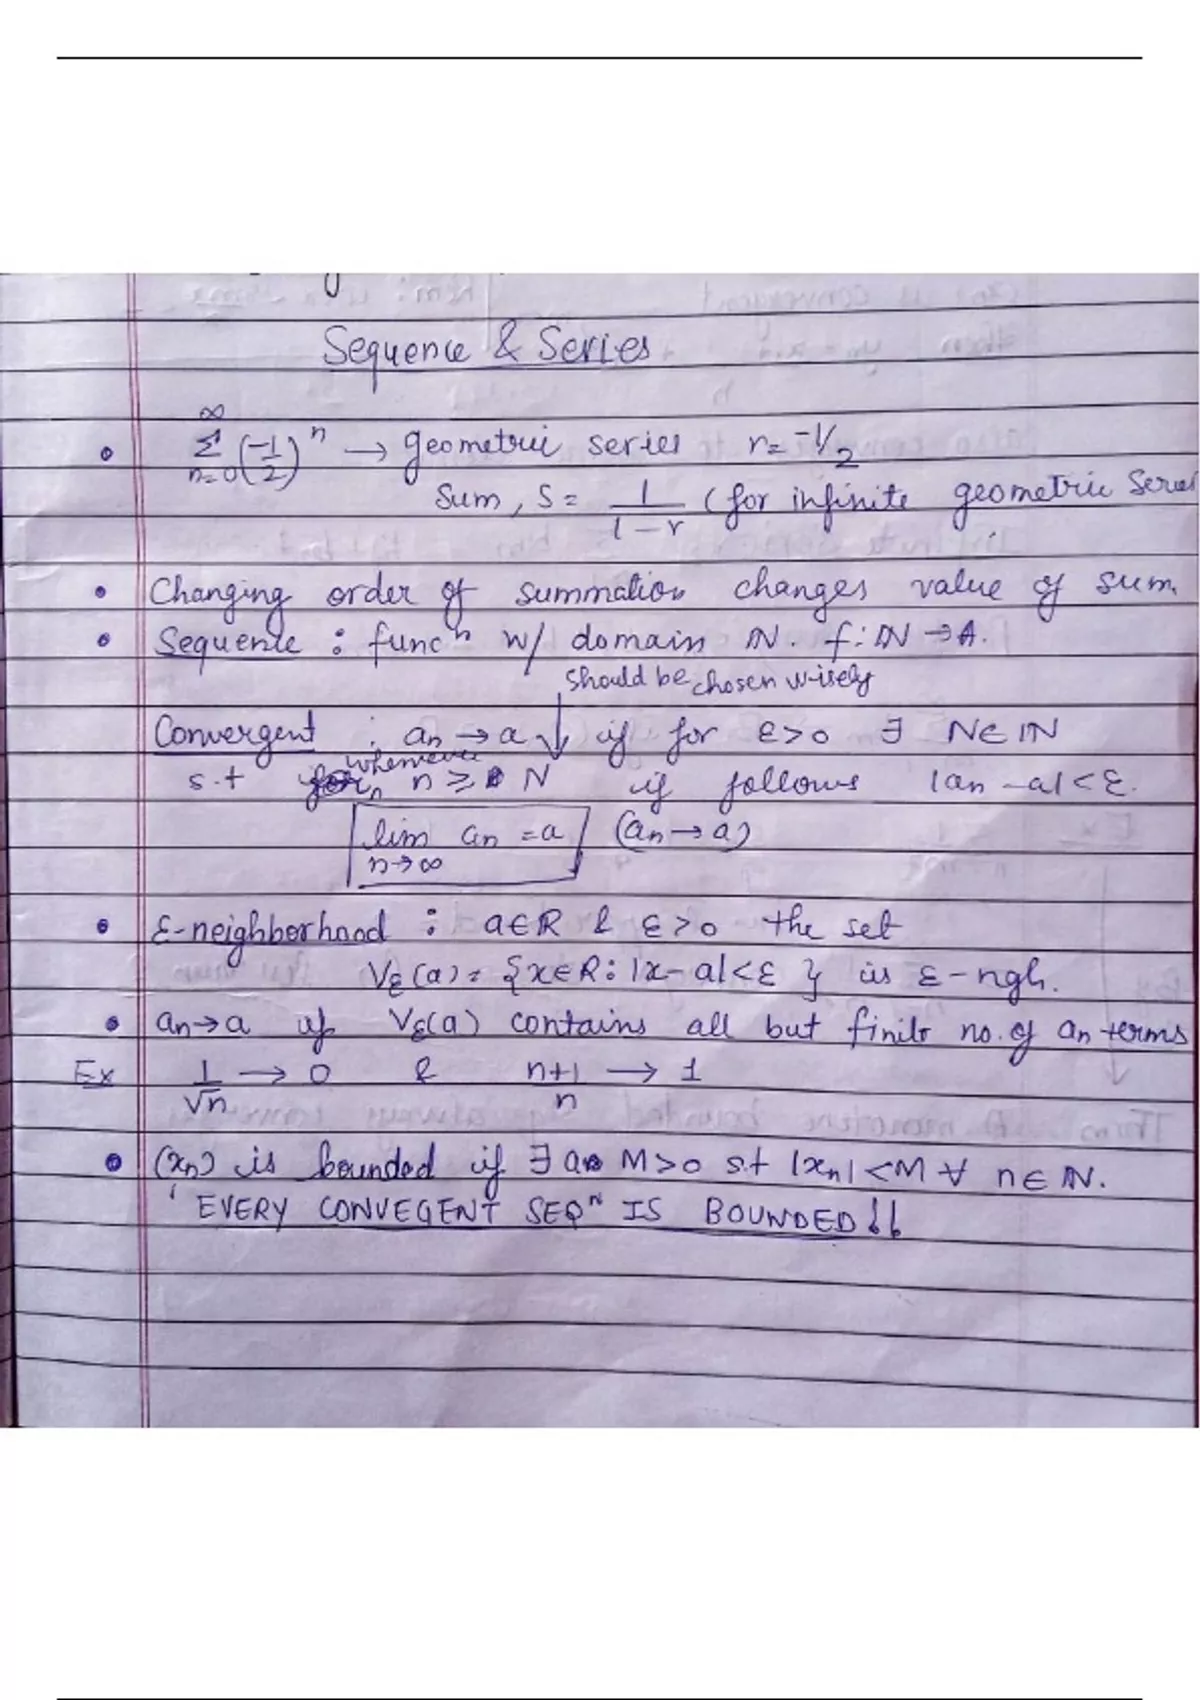 Sequence & Series
∞
• Σ (-1/2)^n → geometric series r = -1/2
n=0
Sum, S = 1/(1-r) (for infinite geometric Series
• Changing order of summation changes value of sum.
• Sequence : func^n w/ domain ℕ. f: ℕ → A.
should be chosen wisely
Convergent : an → a ↓ if for ε>0 ∃ N∈ℕ
s.t whenever n ≥ N if follows |an - a| < ε.
lim an = a (an → a)
n→∞
• ε-neighborhood : a∈ℝ & ε>0 the set
Vε(a) = {x∈ℝ: |x-a|<ε } is ε-ngh.
• an→a if Vε(a) contains all but finite no. of an terms
Ex 1/√n → 0 & n+1/n → 1
• (xn) is bounded if ∃ a M>0 s.t |xn| <M ∀ n∈ℕ.
'EVERY CONVEGENT SEQ^N IS BOUNDED!!